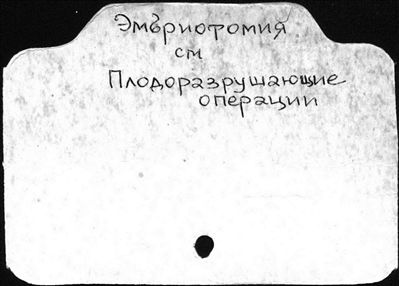 Эмбриотомия
см
Плодоразрушающие
операции